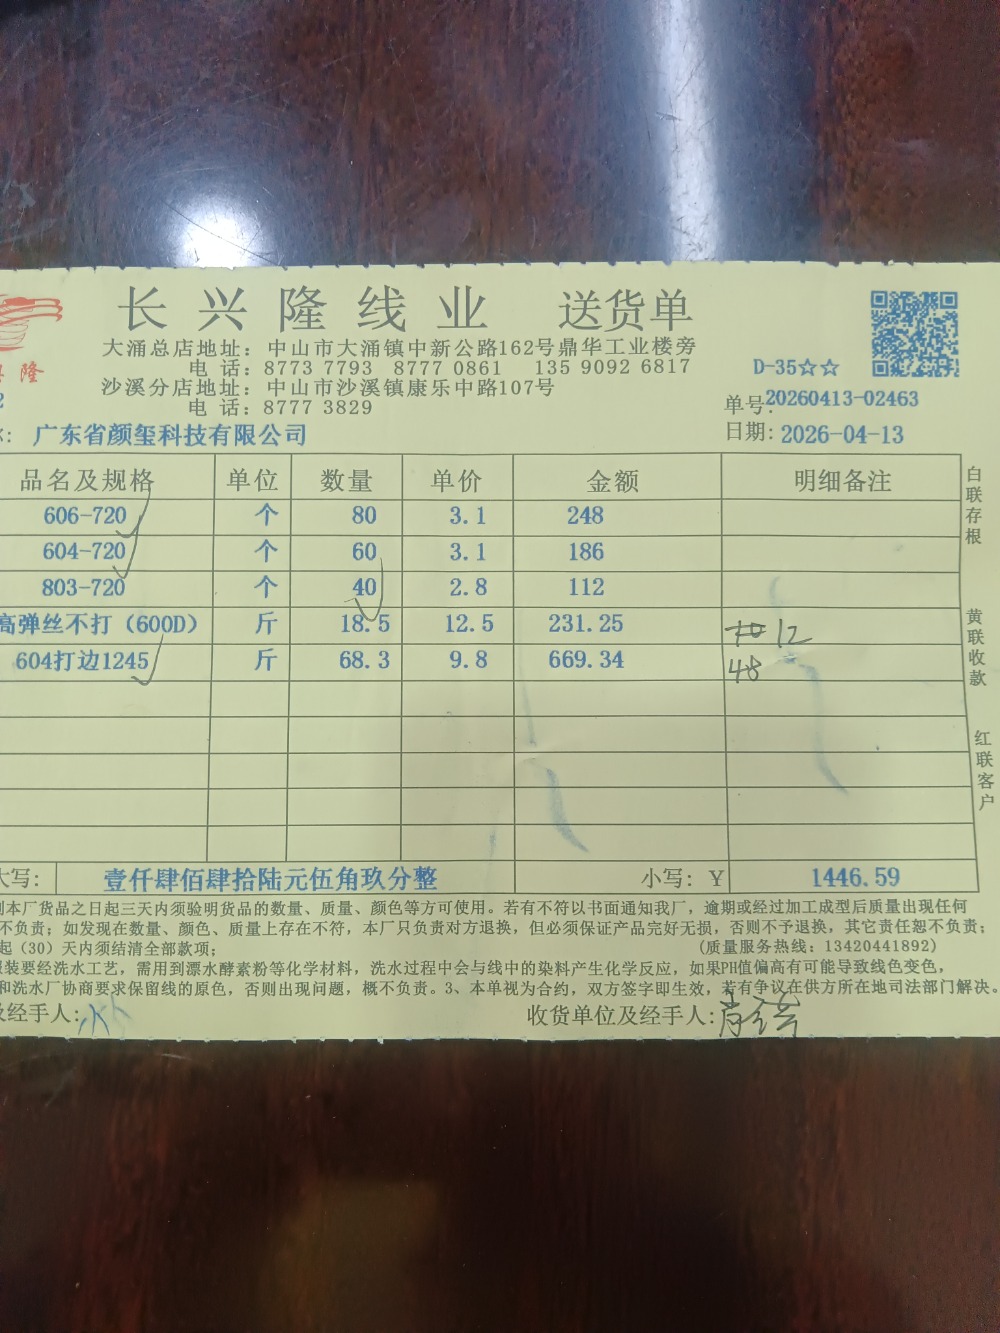 长兴隆线业 送货单
隆
大涌总店地址：中山市大涌镇中新公路162号鼎华工业楼旁
电 话：8773 7793 8777 0861 135 9092 6817
沙溪分店地址：中山市沙溪镇康乐中路107号
电 话：8777 3829
D-35☆☆
2
单号:20260413-02463
广东省颜玺科技有限公司
日期:2026-04-13
品名及规格 单位 数量 单价 金额 明细备注
606-720 个 80 3.1 248
604-720 个 60 3.1 186
803-720 个 40 2.8 112
高弹丝不打（600D） 斤 18.5 12.5 231.25 12
604打边1245 斤 68.3 9.8 669.34 48
白联存根
黄联收款
红联客户
大写： 壹仟肆佰肆拾陆元伍角玖分整 小写：Y 1446.59
到本厂货品之日起三天内须验明货品的数量、质量、颜色等方可使用。若有不符以书面通知我厂，逾期或经过加工成型后质量出现任何
不负责；如发现在数量、颜色、质量上存在不符，本厂只负责对方退换，但必须保证产品完好无损，否则不予退换，其它责任恕不负责；
起（30）天内须结清全部款项； (质量服务热线：13420441892)
服装要经洗水工艺，需用到漂水酵素粉等化学材料，洗水过程中会与线中的染料产生化学反应，如果PH值偏高有可能导致线色变色，
和洗水厂协商要求保留线的原色，否则出现问题，概不负责。3、本单视为合约，双方签字即生效，若有争议在供方所在地司法部门解决。
及经手人： 收货单位及经手人：